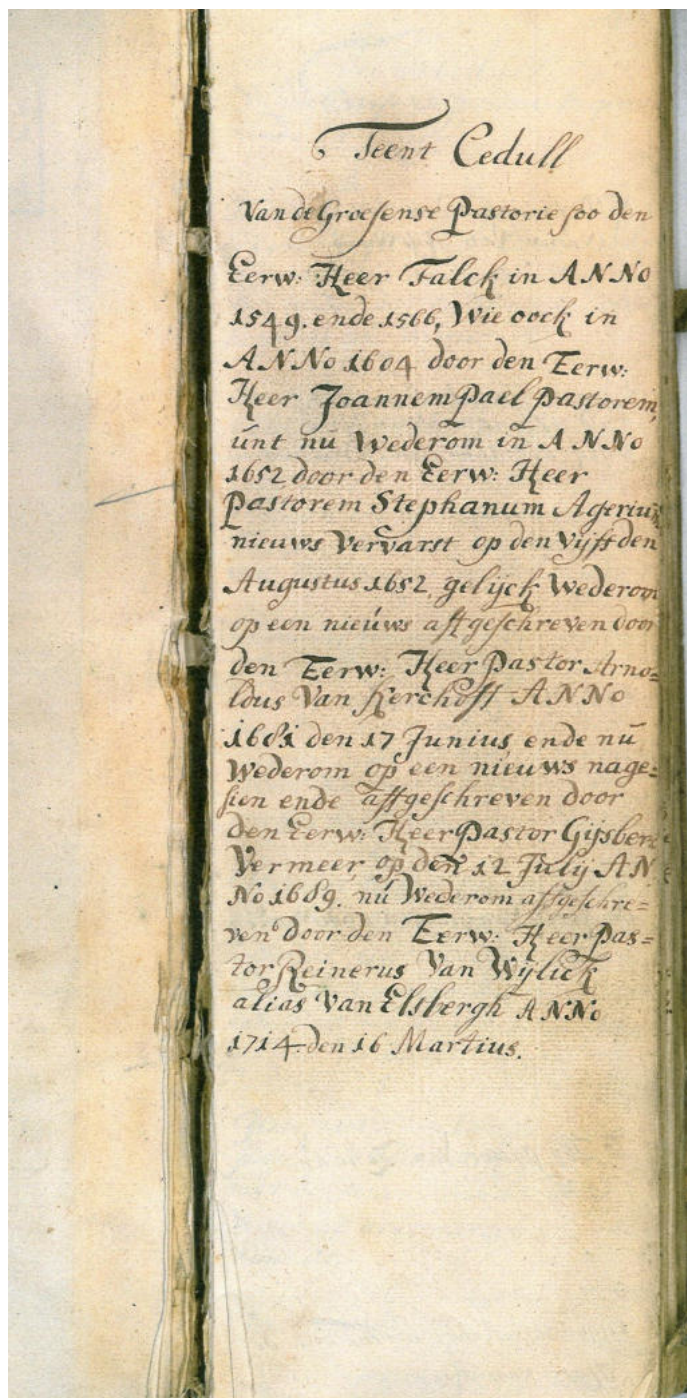 Teent Cedull
Van de Groesense Pastorie soo den
Eerw: Heer Falck in ANNo
1549. ende 1566, Wie oock in
ANNo 1604 door den Eerw:
Heer Joannem Pael Pastorem,
ünt nü Wederom in ANNo
1652 door den Eerw: Heer
Pastorem Stephanum Agerium
nieuws Vervarst op den Vijften
Augustus 1652, gelijck Wederom
op een nieuws affgeschreven door
den Eerw: Heer Pastor Arno=
ldus Van Kerchoff ANNo
1681 den 17 Junius, ende nü
Wederom op een nieuws nage=
sien ende affgeschreven door
den Eerw: Heer Pastor Gijsbert
Vermeer op den 12 Julij AN
No 1689. nú Wederom affgeschre=
ven door den Eerw: Heer Pas=
tor Reinerus Van Wijlick
alias Van Elsbergh ANNo
1714 den 16 Martius.